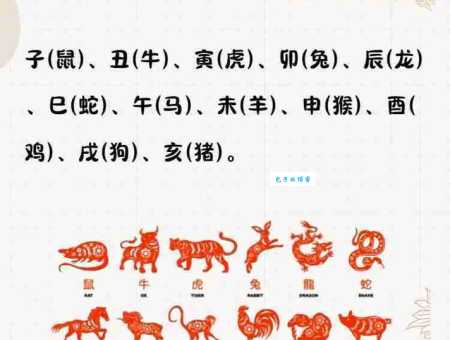 子(鼠)、丑(牛)、寅(虎)、卯(兔)、辰(龙)
、巳(蛇)、午(马)、未(羊)、申(猴)、酉(
鸡)、戌(狗)、亥(猪)。
鼠 牛 虎 兔 龍 蛇
RAT OX TIGER RABBIT DRAGON SNAKE